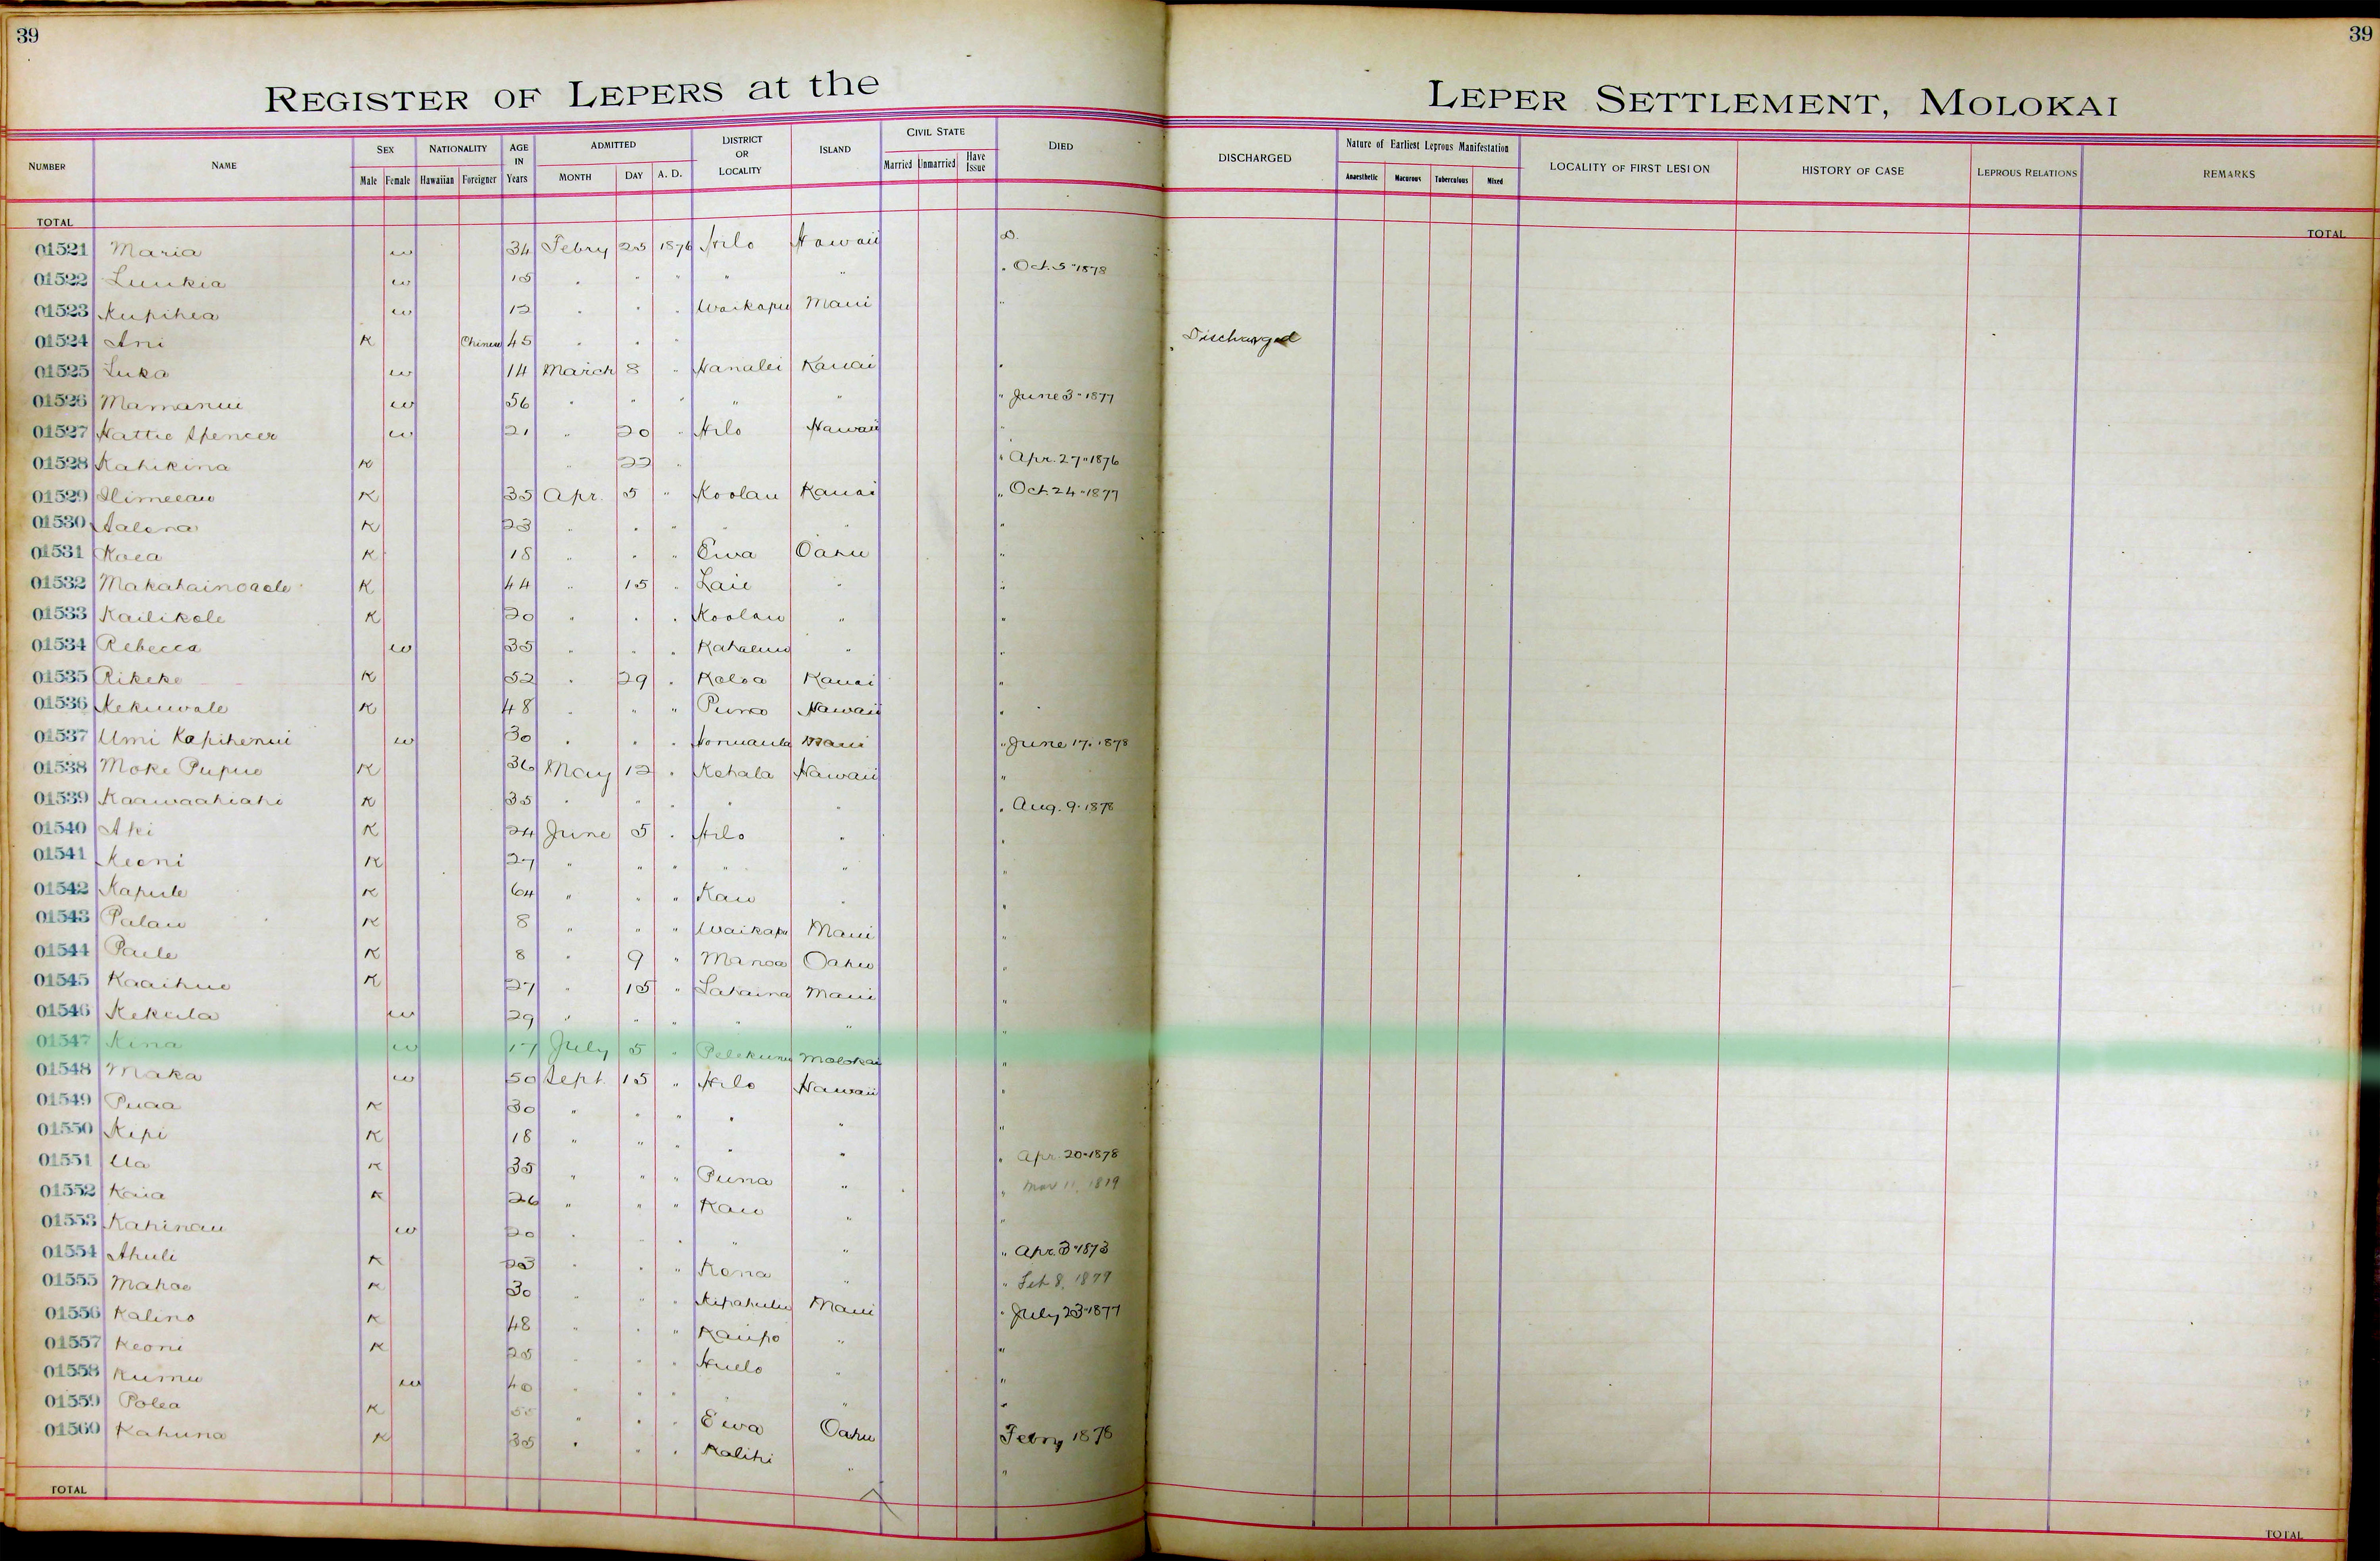 39
39
REGISTER OF LEPERS at the LEPER SETTLEMENT, MOLOKAI
NUMBER NAME SEX NATIONALITY AGE IN Years ADMITTED DISTRICT OR LOCALITY ISLAND CIVIL STATE DIED DISCHARGED Nature of Earliest Leprous Manifestation LOCALITY OF FIRST LESION HISTORY OF CASE LEPROUS RELATIONS REMARKS
Male Female Hawaiian Foreigner MONTH DAY A. D. Married Unmarried Have Issue Anaesthetic Macurous Tuberculous Mixed
TOTAL TOTAL
01521 Maria w 34 Febry 25 1876 Hilo Hawaii D.
01522 Luukia w 15 " " " " " " Oct. 5 " 1878
01523 Kupihea w 12 " " " Waikapu Maui "
01524 Ani K Chinese 45 " " " Discharged
01525 Luka w 14 March 8 " Hanalei Kauai "
01526 Mamanui w 56 " " " " " " June 3 - 1877
01527 Hattie Spencer w 21 " 20 " Hilo Hawaii "
01528 Kahikina K " 22 " " Apr. 27 " 1876
01529 K 35 Apr. 5 " Koolau Kauai " Oct. 24 - 1877
01530 Aalona K 23 " " " " " "
01531 Koea K 18 " " " Ewa Oahu "
01532 Makahainoaole K 44 " 15 " Laie " "
01533 Kailikole K 20 " " " Koolau " "
01534 Rebecca w 35 " " " Kahaluu " "
01535 Rikeke K 52 " 29 " Koloa Kauai "
01536 Kekuwale K 48 " " " Puna Hawaii "
01537 Umi Kapihenui w 30 " " " Honuaula Maui " June 17. 1878
01538 Moke Pupue K 36 May 12 " Kohala Hawaii "
01539 Kaawaahiahi K 35 " " " " " " Aug. 9. 1878
01540 Aki K 24 June 5 " Hilo " "
01541 Keoni K 27 " " " " " "
01542 Kapule K 64 " " " Kau " "
01543 Palau K 8 " " " Waikapu Maui "
01544 Paele K 8 " 9 " Manoa Oahu "
01545 Kaaihue K 27 " 15 " Lahaina Maui "
01546 Kekula w 29 " " " " " "
01547 Kina w 17 July 5 " Pelekunu Molokai "
01548 Maka w 50 Sept. 15 " Hilo Hawaii "
01549 Puaa K 30 " " " " " "
01550 Kepi K 18 " " " " " " Apr. 20 - 1878
01551 Ua K 35 " " " Puna " " Mar 11, 1879
01552 Kaia K 26 " " " Kau " "
01553 Kahinau w 20 " " " " " " Apr. 3 - 1873
01554 Ahuli K 23 " " " Kona " " Feb 8, 1879
01555 Mahoe K 30 " " " Kipahulu Maui " July 23 - 1877
01556 Kalino K 48 " " " Kaupo " "
01557 Keoni K 25 " " " Huelo " "
01558 Kumu w 40 " " " " " "
01559 Polea K 55 " " " Ewa Oahu Febry 1878
01560 Kahuna K 35 " " " Kalihi " "
TOTAL TOTAL